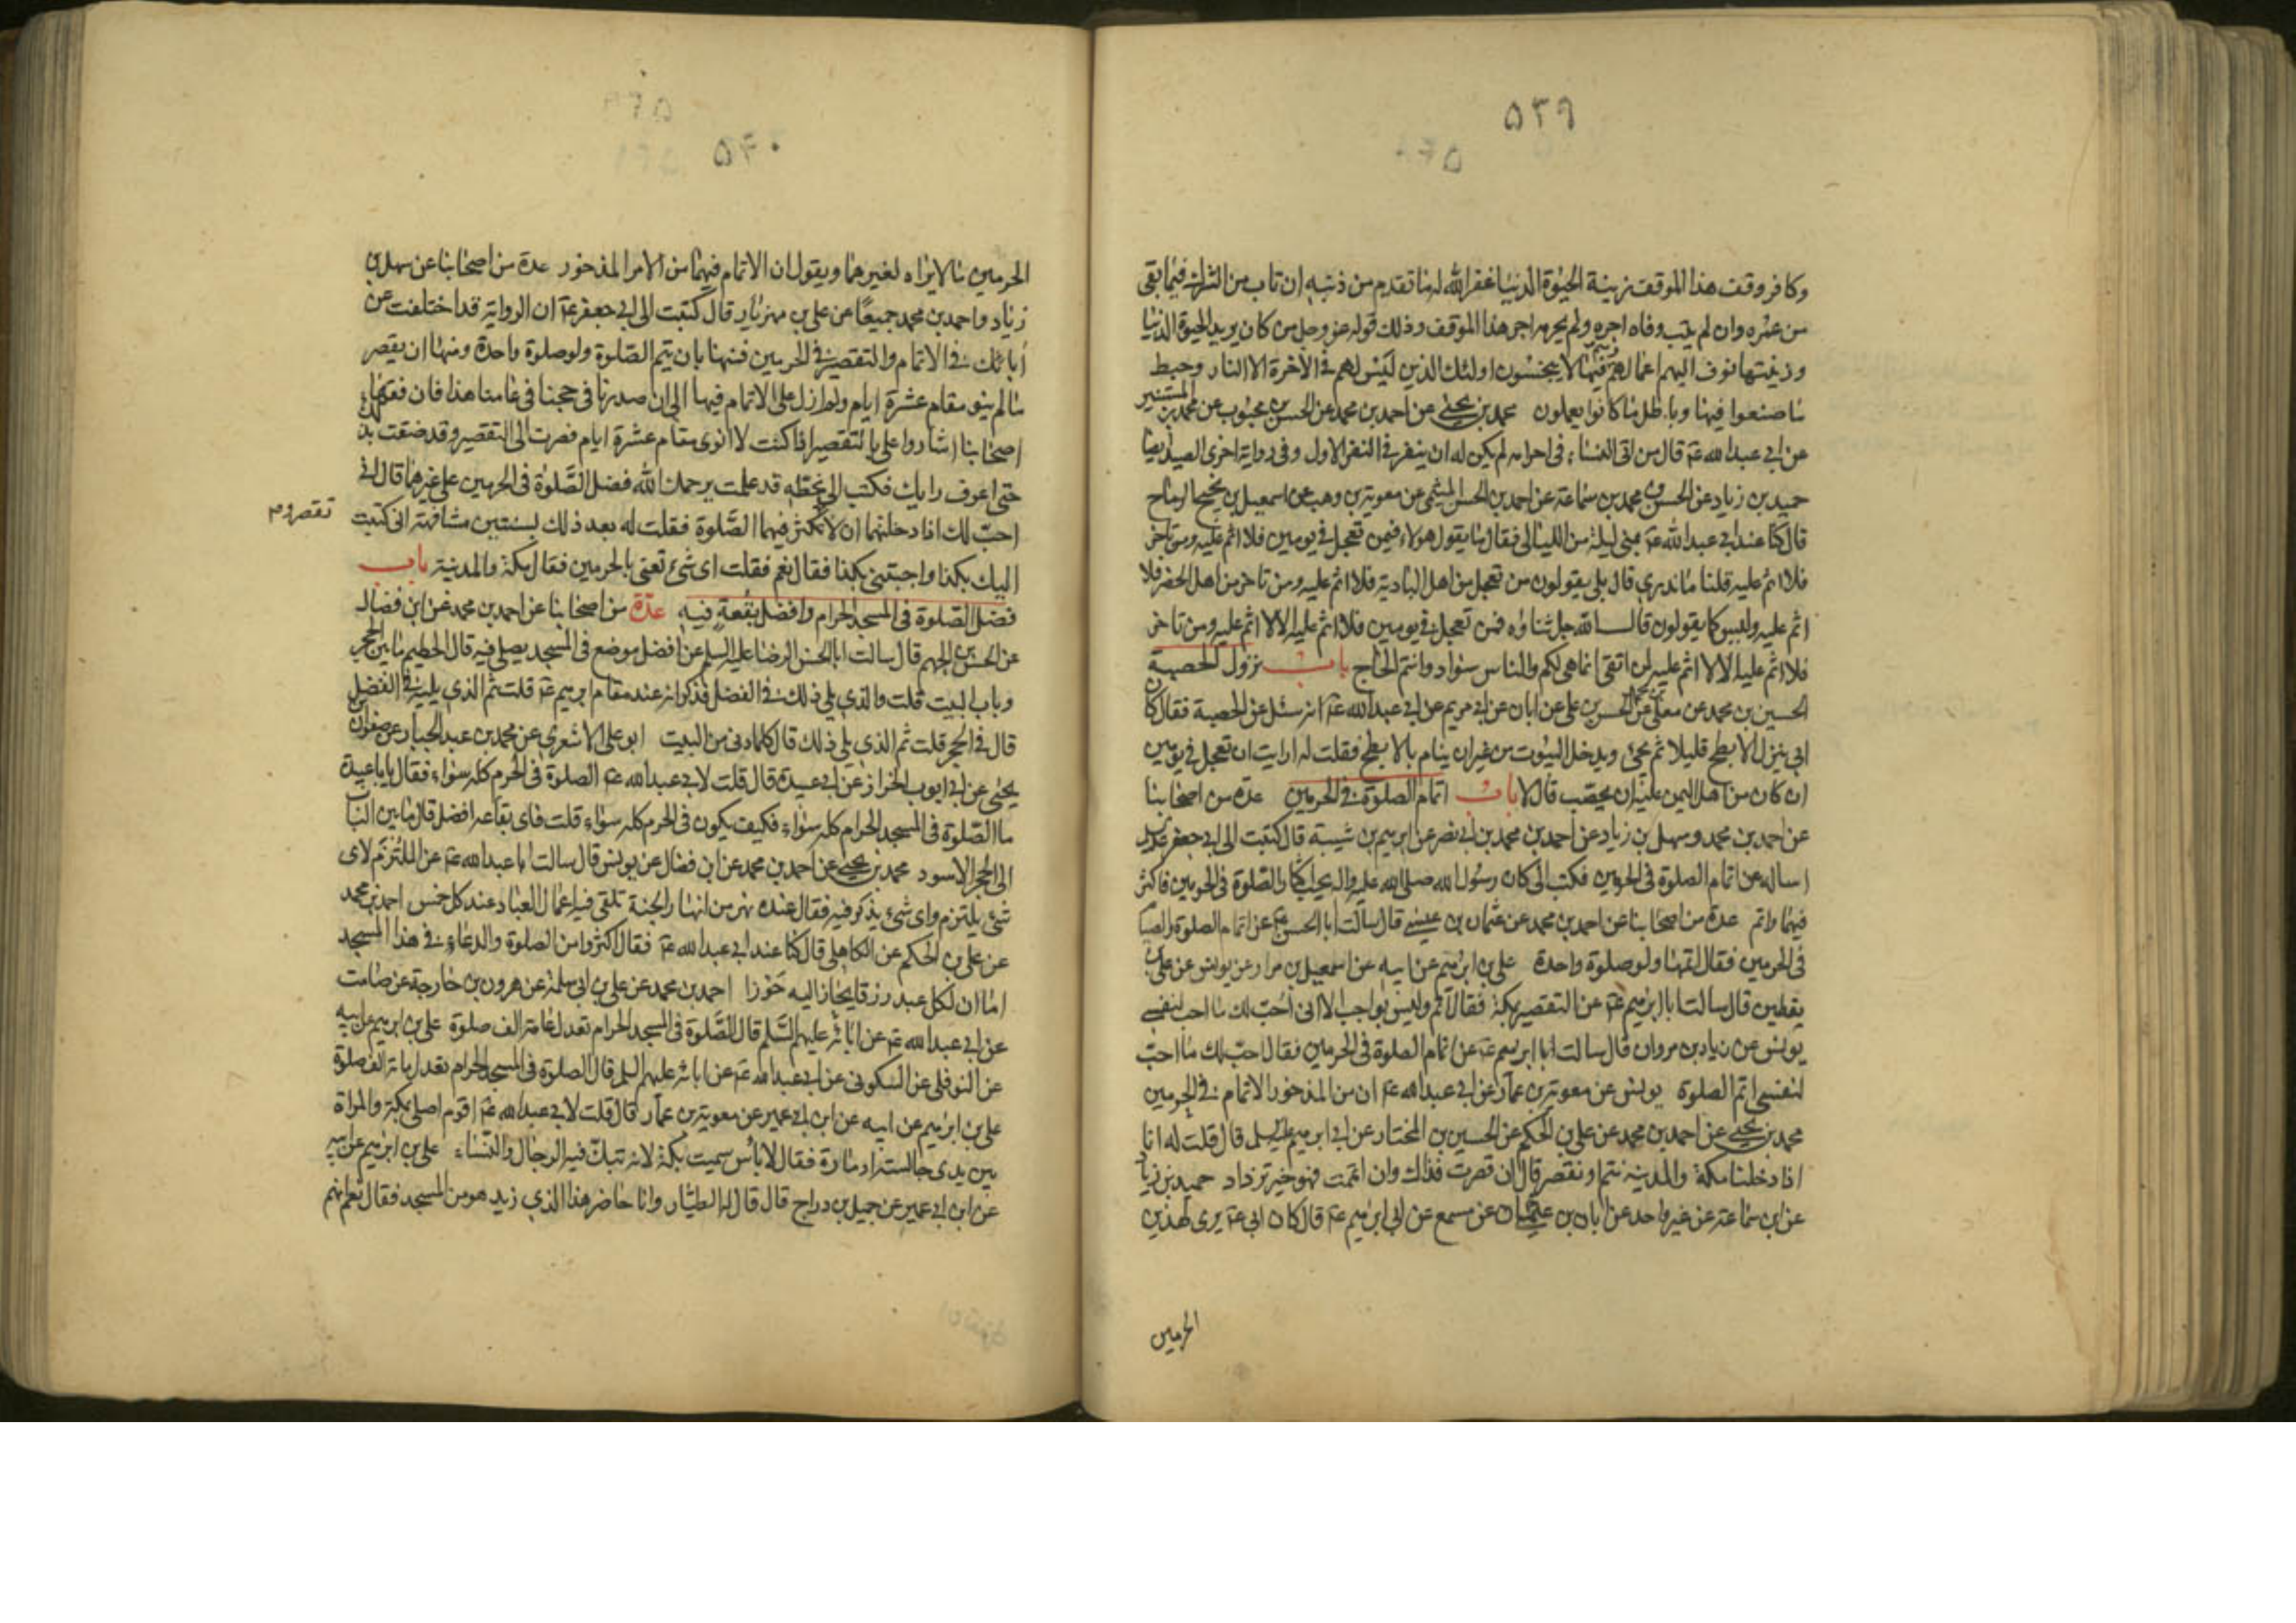 ٥٣٩
وكافر وقف هذا الموقف زينة الحيوة الدنيا غفر الله له ما تقدم من ذنبه ان تاب من الشرك فيما بقى
من عمره وان لم يتب وفاه اجره ولم يحرمه اجر هذا الموقف وذلك قوله عز وجل من كان يريد الحيوة الدنيا
وزينتها نوف اليهم اعمالهم فيها وهم فيها لا يبخسون اولئك الذين ليس لهم فى الآخرة الا النار وحبط
ما صنعوا فيها وباطل ما كانوا يعملون محمد بن يحيى عن احمد بن محمد عن الحسن بن محبوب عن محمد بن المستنير
عن ابى عبد الله عه قال من اتى النساء فى احرامه لم يكن له ان ينفر فى النفر الاول وفى رواية اخرى الصيد ايضا
حميد بن زياد عن الحسن بن محمد بن سماعة عن احمد بن الحسن الميثمى عن معوية بن وهب عن اسمعيل بن نجيح الرماح
قال كنا عند ابى عبد الله عه بمنى ليلة من الليالى فقال ما يقول هؤلاء فيمن تعجل فى يومين فلا اثم عليه ومن تاخر
فلا اثم عليه قلنا ما ندرى قال بلى يقولون من تعجل من اهل البادية فلا اثم عليه ومن تاخر من اهل الحضر فلا
اثم عليه وليس كما يقولون قال الله جل ثناؤه فمن تعجل فى يومين فلا اثم عليه الا لا اثم عليه ومن تاخر
فلا اثم عليه الا لا اثم عليه لمن اتقى انما هى لكم والناس سواد وانتم الحاج باب نزول الحصبة
الحسين بن محمد عن معلى بن محمد عن الحسن بن على عن ابان عن ابى مريم عن ابى عبد الله عه انه سئل عن الحصبة فقال كان
ابى ينزل الابطح قليلا ثم يجئ ويدخل البيوت من غير ان ينام بالابطح فقلت له ارايت ان تعجل فى يومين
ان كان من اهل اليمن عليه ان يحصب قال لا باب اتمام الصلوة فى الحرمين عدة من اصحابنا
عن احمد بن محمد وسهل بن زياد عن احمد بن محمد بن ابى نصر عن ابرهيم بن شيبة قال كتبت الى ابى جعفر عليه
اساله عن اتمام الصلوة فى الحرمين فكتب الى كان رسول الله صلى الله عليه واله يحب اكثار الصلوة فى الحرمين فاكثر
فيهما واتم عدة من اصحابنا عن احمد بن محمد عن عثمان بن عيسى قال سالت ابا الحسن عه عن اتمام الصلوة والصيام
فى الحرمين فقال اتمها ولو صلوة واحدة على بن ابرهيم عن ابيه عن اسمعيل بن مرار عن يونس عن على بن
يقطين قال سالت ابا ابرهيم عه عن التقصير بمكة فقال اتم وليس بواجب الا انى احب لك ما احب لنفسى
يونس عن زياد بن مروان قال سالت ابا ابرهيم عه عن اتمام الصلوة فى الحرمين فقال احب لك ما احب
لنفسى اتم الصلوة يونس عن معوية بن عمار عن ابى عبد الله عه ان من المذخور الاتمام فى الحرمين
محمد بن يحيى عن احمد بن محمد عن على بن الحكم عن الحسين بن المختار عن ابى ابرهيم عليه السلم قال قلت له انا
اذا دخلنا مكة والمدينة نتم او نقصر قال ان قصرت فذاك وان اتممت فهو خير تزداد حميد بن زياد
عن ابن سماعة عن غير واحد عن ابان بن عثمان عن مسمع عن ابى ابرهيم عه قال كان ابى عه يرى لهذين
الحرمين
٥٤٠
الحرمين ما لا يراه لغيرهما ويقول ان الاتمام فيهما من الامر المذخور عدة من اصحابنا عن سهل بن
زياد واحمد بن محمد جميعا عن على بن مهزيار قال كتبت الى ابى جعفر عه ان الرواية قد اختلفت عن
آبائك فى الاتمام والتقصير فى الحرمين فمنها بان يتم الصلوة ولو صلوة واحدة ومنها ان يقصر
ما لم ينو مقام عشرة ايام ولم ازل على الاتمام فيها الى ان صدرنا فى حجنا فى عامنا هذا فان فقهاء
اصحابنا اشاروا على بالتقصير اذا كنت لا انوى مقام عشرة ايام فصرت الى التقصير وقد ضقت بذلك
حتى اعرف رايك فكتب الى بخطه قد علمت يرحمك الله فضل الصلوة فى الحرمين على غيرهما فانى
احب لك اذا دخلتهما ان لا تقصر وتكثر فيهما الصلوة فقلت له بعد ذلك بسنتين مشافهة انى كتبت
تقصر و م
اليك بكذا واجبتنى بكذا فقال نعم فقلت اى شئ تعنى بالحرمين فقال مكة والمدينة باب
فضل الصلوة فى المسجد الحرام وافضل بقعة فيه عدة من اصحابنا عن احمد بن محمد عن ابن فضال
عن الحسن بن الجهم قال سالت ابا الحسن الرضا عليه السلم عن افضل موضع فى المسجد يصلى فيه قال الحطيم ما بين الحجر
وباب البيت قلت والذى يلى ذلك فى الفضل فذكر انه عند مقام ابرهيم عه قلت ثم الذى يليه فى الفضل
قال فى الحجر قلت ثم الذى يلى ذلك قال كلما دنى من البيت ابو على الاشعرى عن محمد بن عبد الجبار عن صفوان بن
يحيى عن ابى ايوب الخزاز عن ابى عبيدة قال قلت لابى عبد الله عه الصلوة فى الحرم كله سواء فقال يا ابا عبيدة
ما الصلوة فى المسجد الحرام كله سواء فكيف يكون فى الحرم كله سواء قلت فاى بقاعه افضل قال ما بين الباب
الى الحجر الاسود محمد بن يحيى عن احمد بن محمد عن ابن فضال عن يونس قال سالت ابا عبد الله عه عن الملتزم لاى
شئ يلتزم واى شئ يذكر فيه فقال عنده نهر من انهار الجنة تلقى فيه اعمال العباد عند كل خمس احمد بن محمد
عن على بن الحكم عن الكاهلى قال كنا عند ابى عبد الله عه فقال اكثروا من الصلوة والدعاء فى هذا المسجد
اما ان لكل عبد رزقا يجاز اليه حوزا احمد بن محمد عن على بن ابى سلمة عن هرون بن خارجة عن صامت
عن ابى عبد الله عه عن ابائه عليهم السلم قال الصلوة فى المسجد الحرام تعدل مائة الف صلوة على بن ابرهيم عن ابيه
عن النوفلى عن السكونى عن ابى عبد الله عه عن ابائه عليهم السلم قال الصلوة فى المسجد الحرام تعدل مائة الف صلوة
على بن ابرهيم عن ابيه عن ابن ابى عمير عن معوية بن عمار قال قلت لابى عبد الله عه اقوم اصلى بمكة والمراة
بين يدى جالسة او مارة فقال لا باس سميت بكة لانه تبك فيه الرجال والنساء على بن ابرهيم عن ابيه
عن ابن ابى عمير عن جميل بن دراج قال قال له الطيار وانا حاضر هذا الذى زيد هو من المسجد فقال نعم انهم